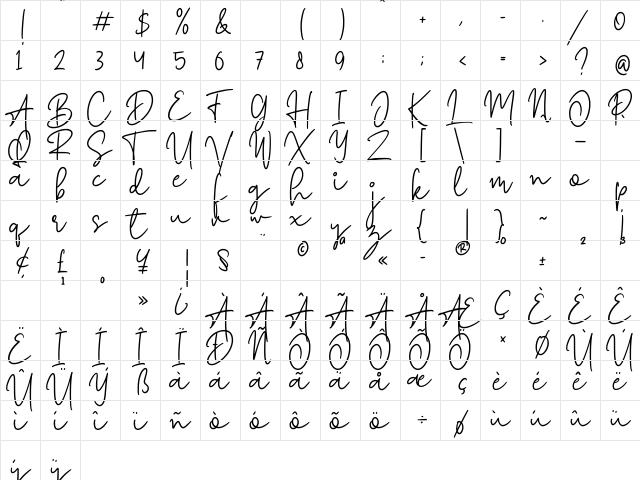 ! # $ % & ( ) + , - . / 0
1 2 3 4 5 6 7 8 9 : ; < = > ? @
A B C D E F G H I J K L M N O P
Q R S T U V W X Y Z [ \ ] -
a b c d e f g h i j k l m n o p
q r s t u v w x y z { | } ~
¢ £ ¥ ¦ § ¨ © ª « - ® º ± ² ³
¹ ° » ¿ À Á Â Ã Ä Å Æ Ç È É Ê
Ë Ì Í Î Ï Ð Ñ Ò Ó Ô Õ Ö × Ø Ù Ú
Û Ü Ý ß à á â ã ä å æ ç è é ê ë
ì í î ï ñ ò ó ô õ ö ÷ ø ù ú û ü
ý ÿ